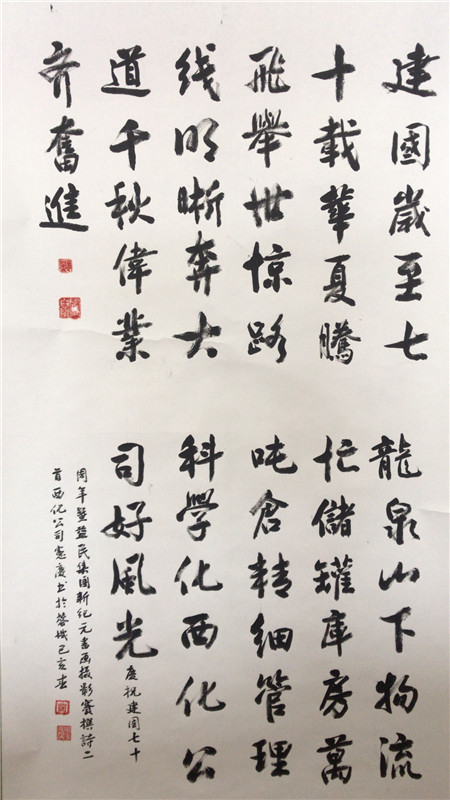 建國歲至七
十載華夏騰
飛舉世惊路
线明晰奔大
道千秋偉業
齐奮進
龍泉山下物流
忙儲罐庫房萬
吨倉精细管理
科学化西化公
司好風光
慶祝建国七十
周年暨盐民集团新纪元书画摄影賽撰詩二
首西化公司憲慶书於磐城己亥春